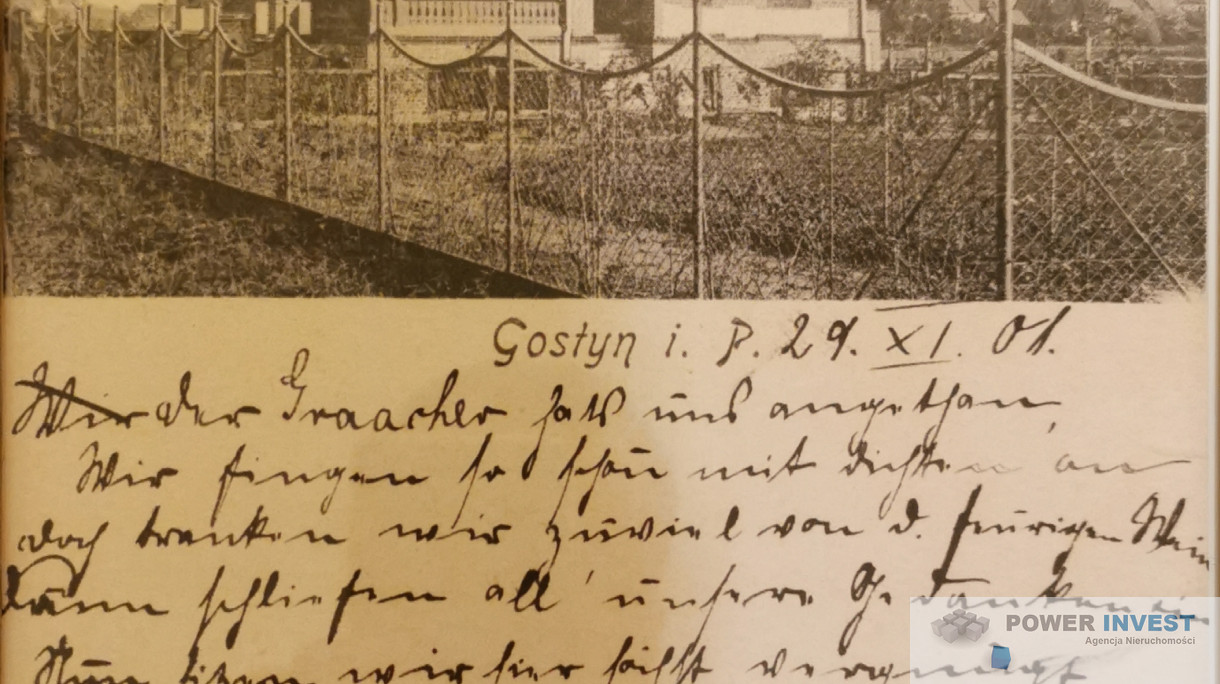 Gostyn i. P. 29. XI. 01.
Wir der Graacher hats uns angethan,
Wir fingen so schön mit dichten an
doch tranken wir zuviel von d. feurigen Wein
Dann schliefen all' unsere Gedanken ein
Nun sitzen wir hier höchst vergnügt
POWER INVEST
Agencja Nieruchomości